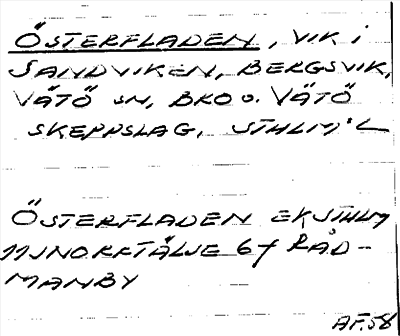 ÖSTERFLADEN, VIK I
SANDVIKEN, BERGSVIK,
VÄTÖ SN, BRO O. VÄTÖ
SKEPPSLAG, STHLM'L
ÖSTERFLADEN EKSTHLM
11J NORRTÄLJE 6f RÅD-
MANBY
AF.58